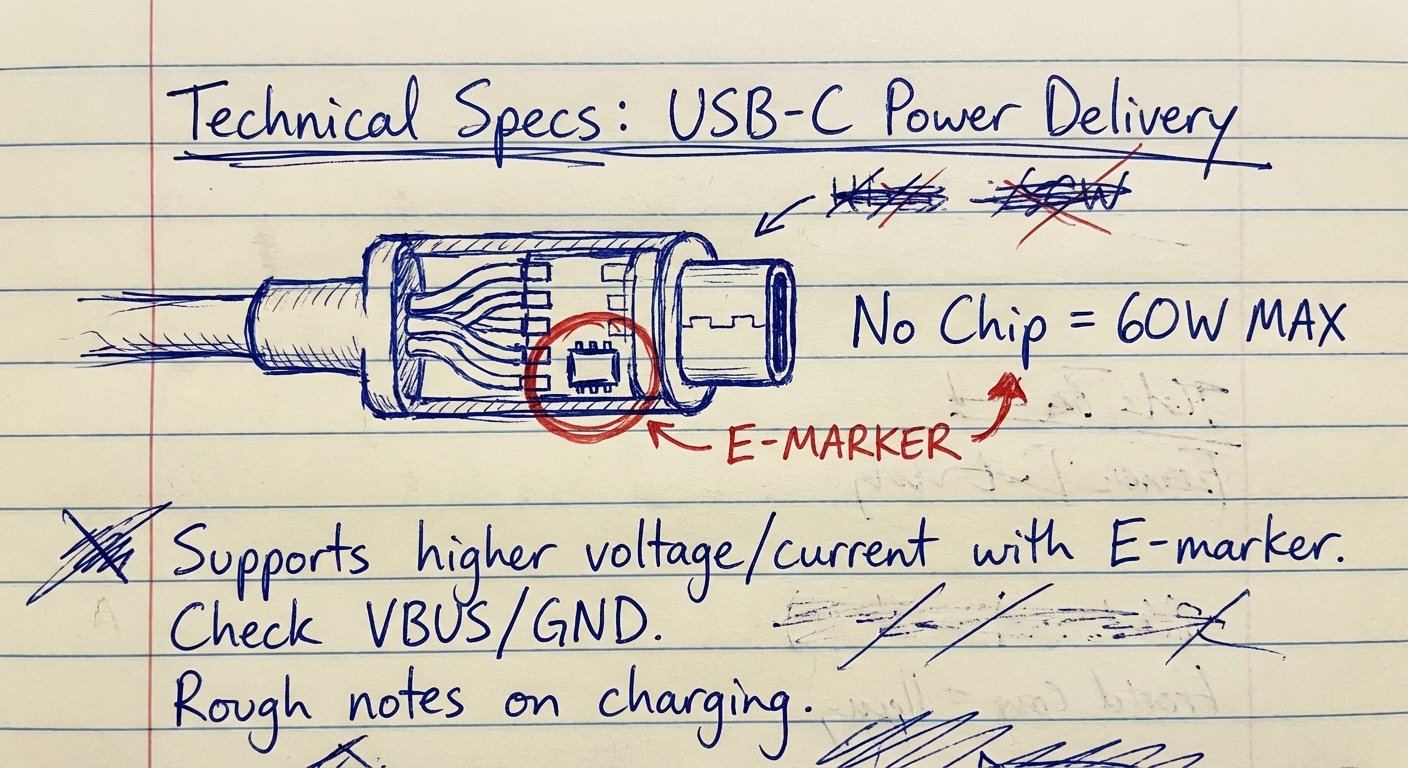 Technical Specs: USB-C Power Delivery
No Chip = 60W MAX
E-MARKER
Supports higher voltage/current with E-marker.
Check VBUS/GND.
Rough notes on charging.